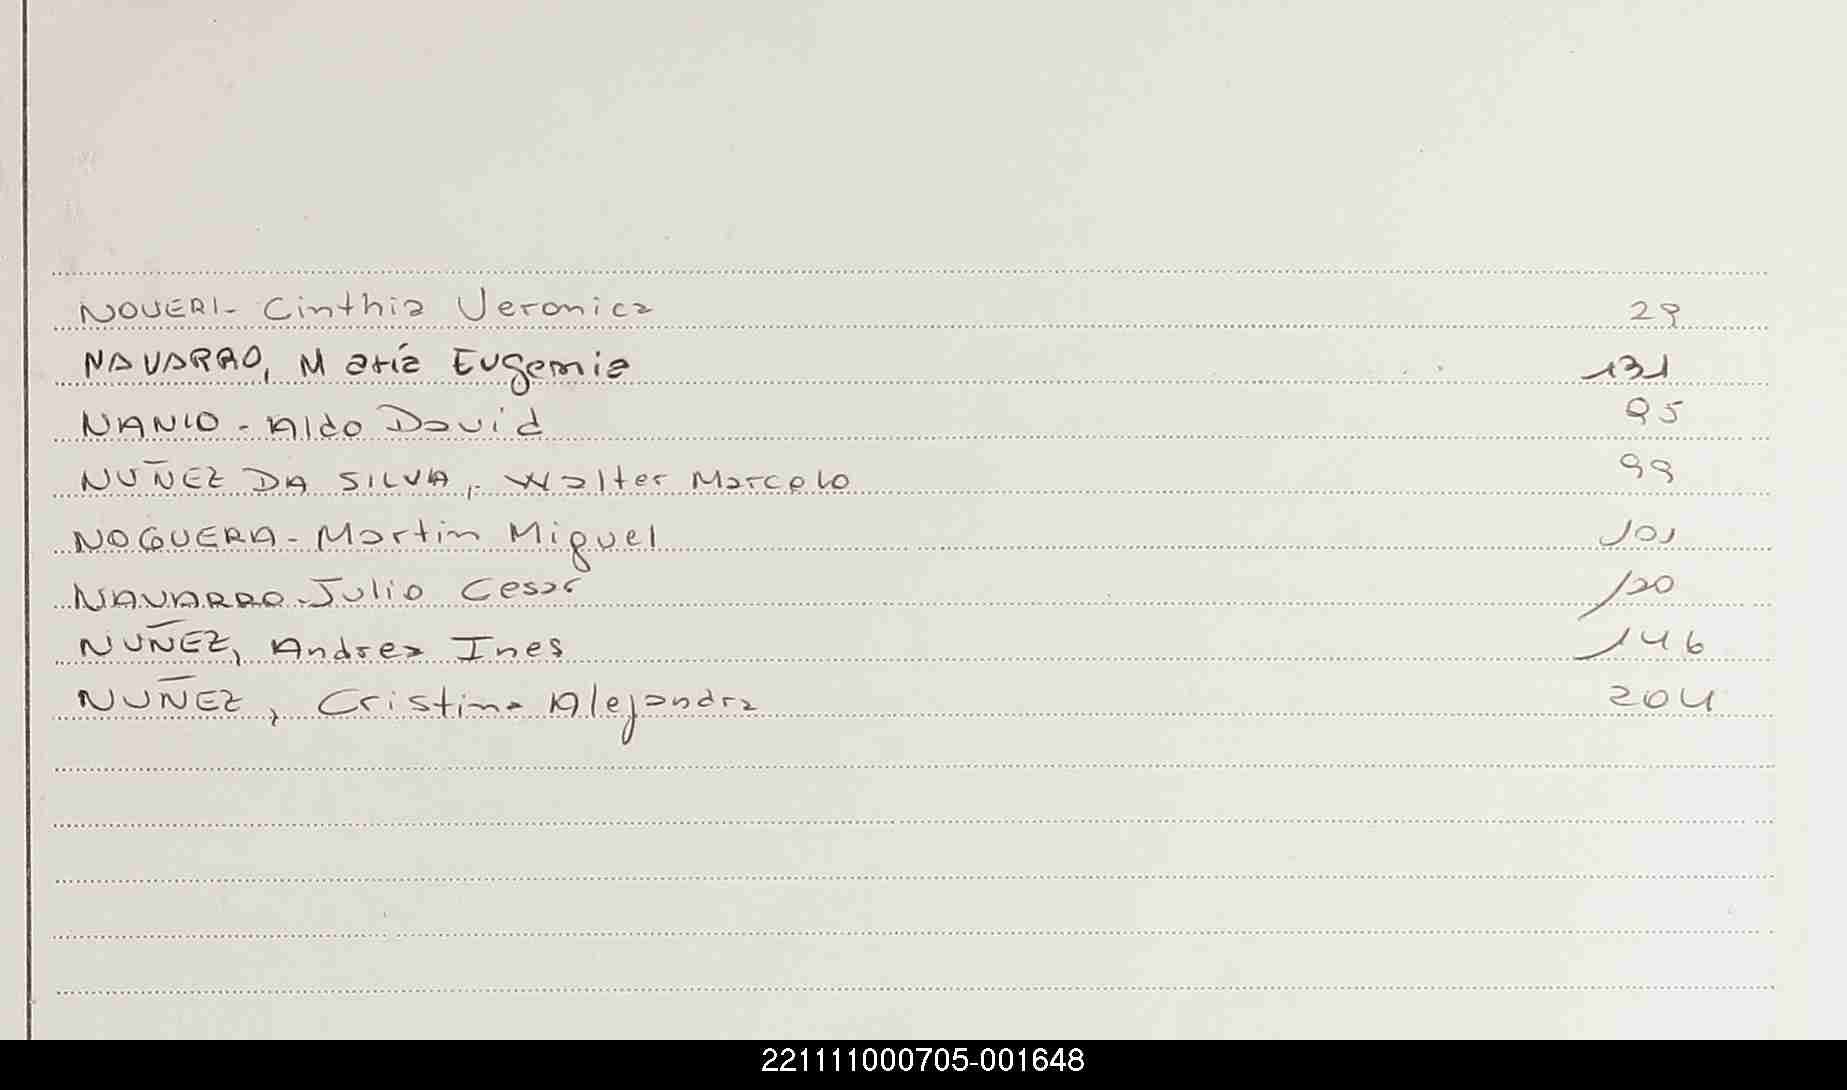 NOVERI- Cinthia Veronica 29
NAVARRO, María Eugenia 131
NANIO - Aldo David 95
NUÑEZ DA SILVA, Walter Marcelo 99
NOGUERA - Martin Miguel 101
NAVARRO - Julio Cesar 120
NUÑEZ, Andrea Ines 146
NUÑEZ, Cristina Alejandra 204
221111000705-001648